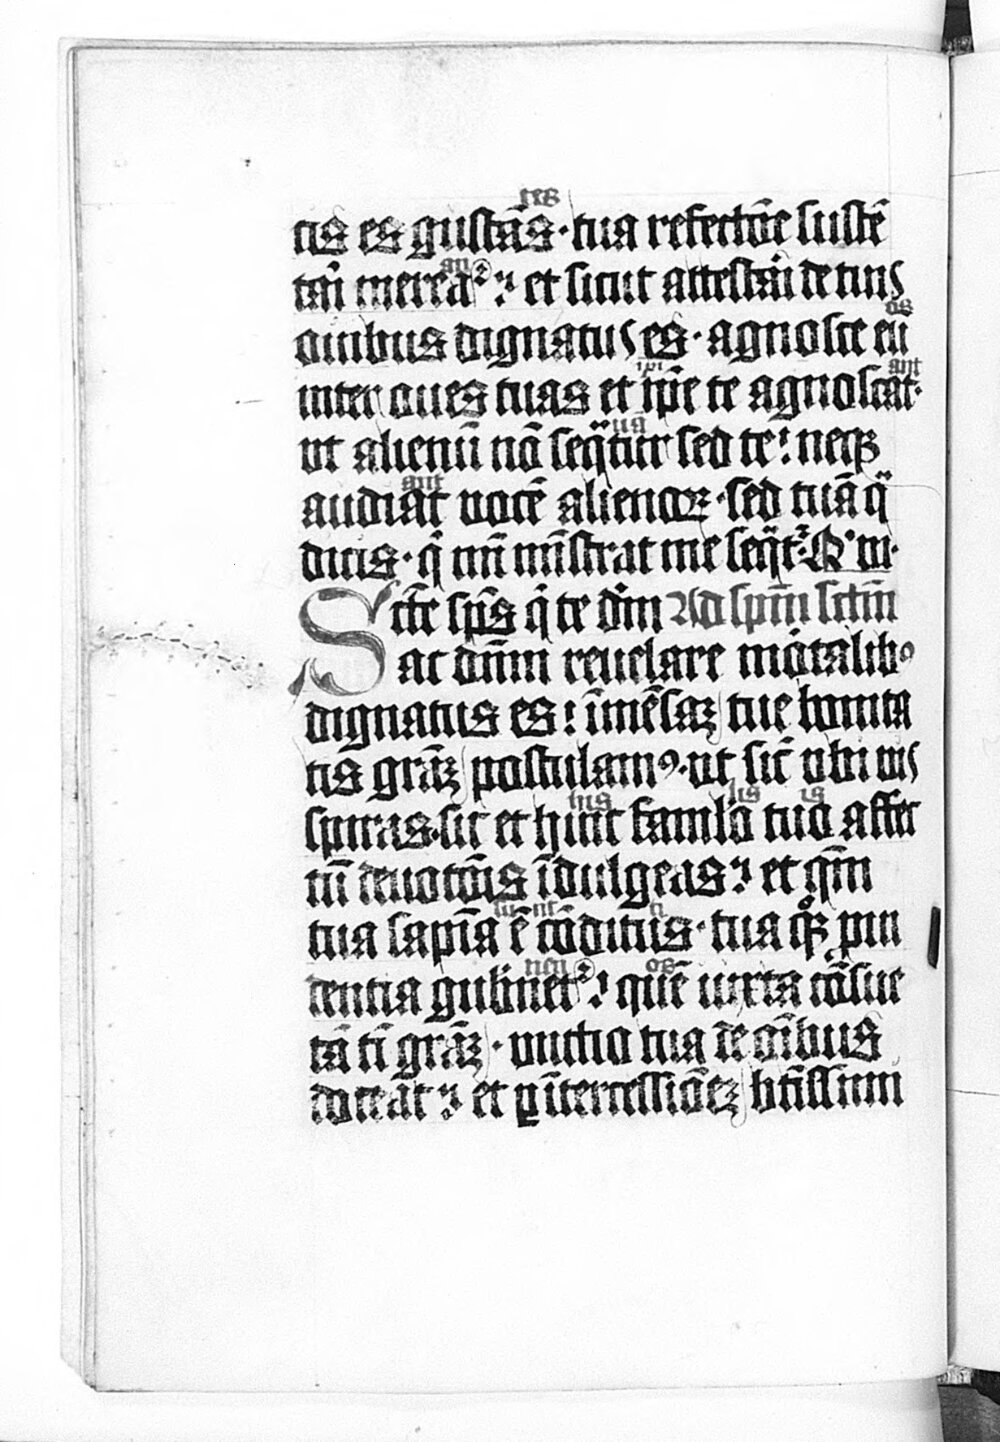 tes
tis es gustās · tua refectōe sustē
an
tari mereat᷑ ⁊ et sicut attestari de tuis
os
ouibus dignatus es · agnosce eū
ipi ant
inter oues tuas et ip̄e te agnoscat ·
ua
ut alienū nō seq̄tur sed te : neqꝫ
ant
audiat vocē alienoꝝ · sed tuā q̄
dicis · q̄ mī mīstrat me seq̄t᷑
Sctē sp̄s q̄ te dn̄m Ad sp̄m sctm̄
ac dn̄m reuelare mortalibꝰ
dignatus es : īmēsaꝫ tue bonita
tis grāꝫ postulamꝰ · ut sic̄ ubi vis
lis is
his
spiras · sic et huic famulo tuo affec
tū deuotōis īdulgeas ⁊ et qm̄
tua sapīa ē cōditus · tua qͦꝫ pru
nen os
dentia gub̄net᷑ : quē iuxta cōsue
tā tī grāꝫ · vnctio tua de oībus
doceat ⁊ et ꝑ ītercessiōeꝫ btīssimi